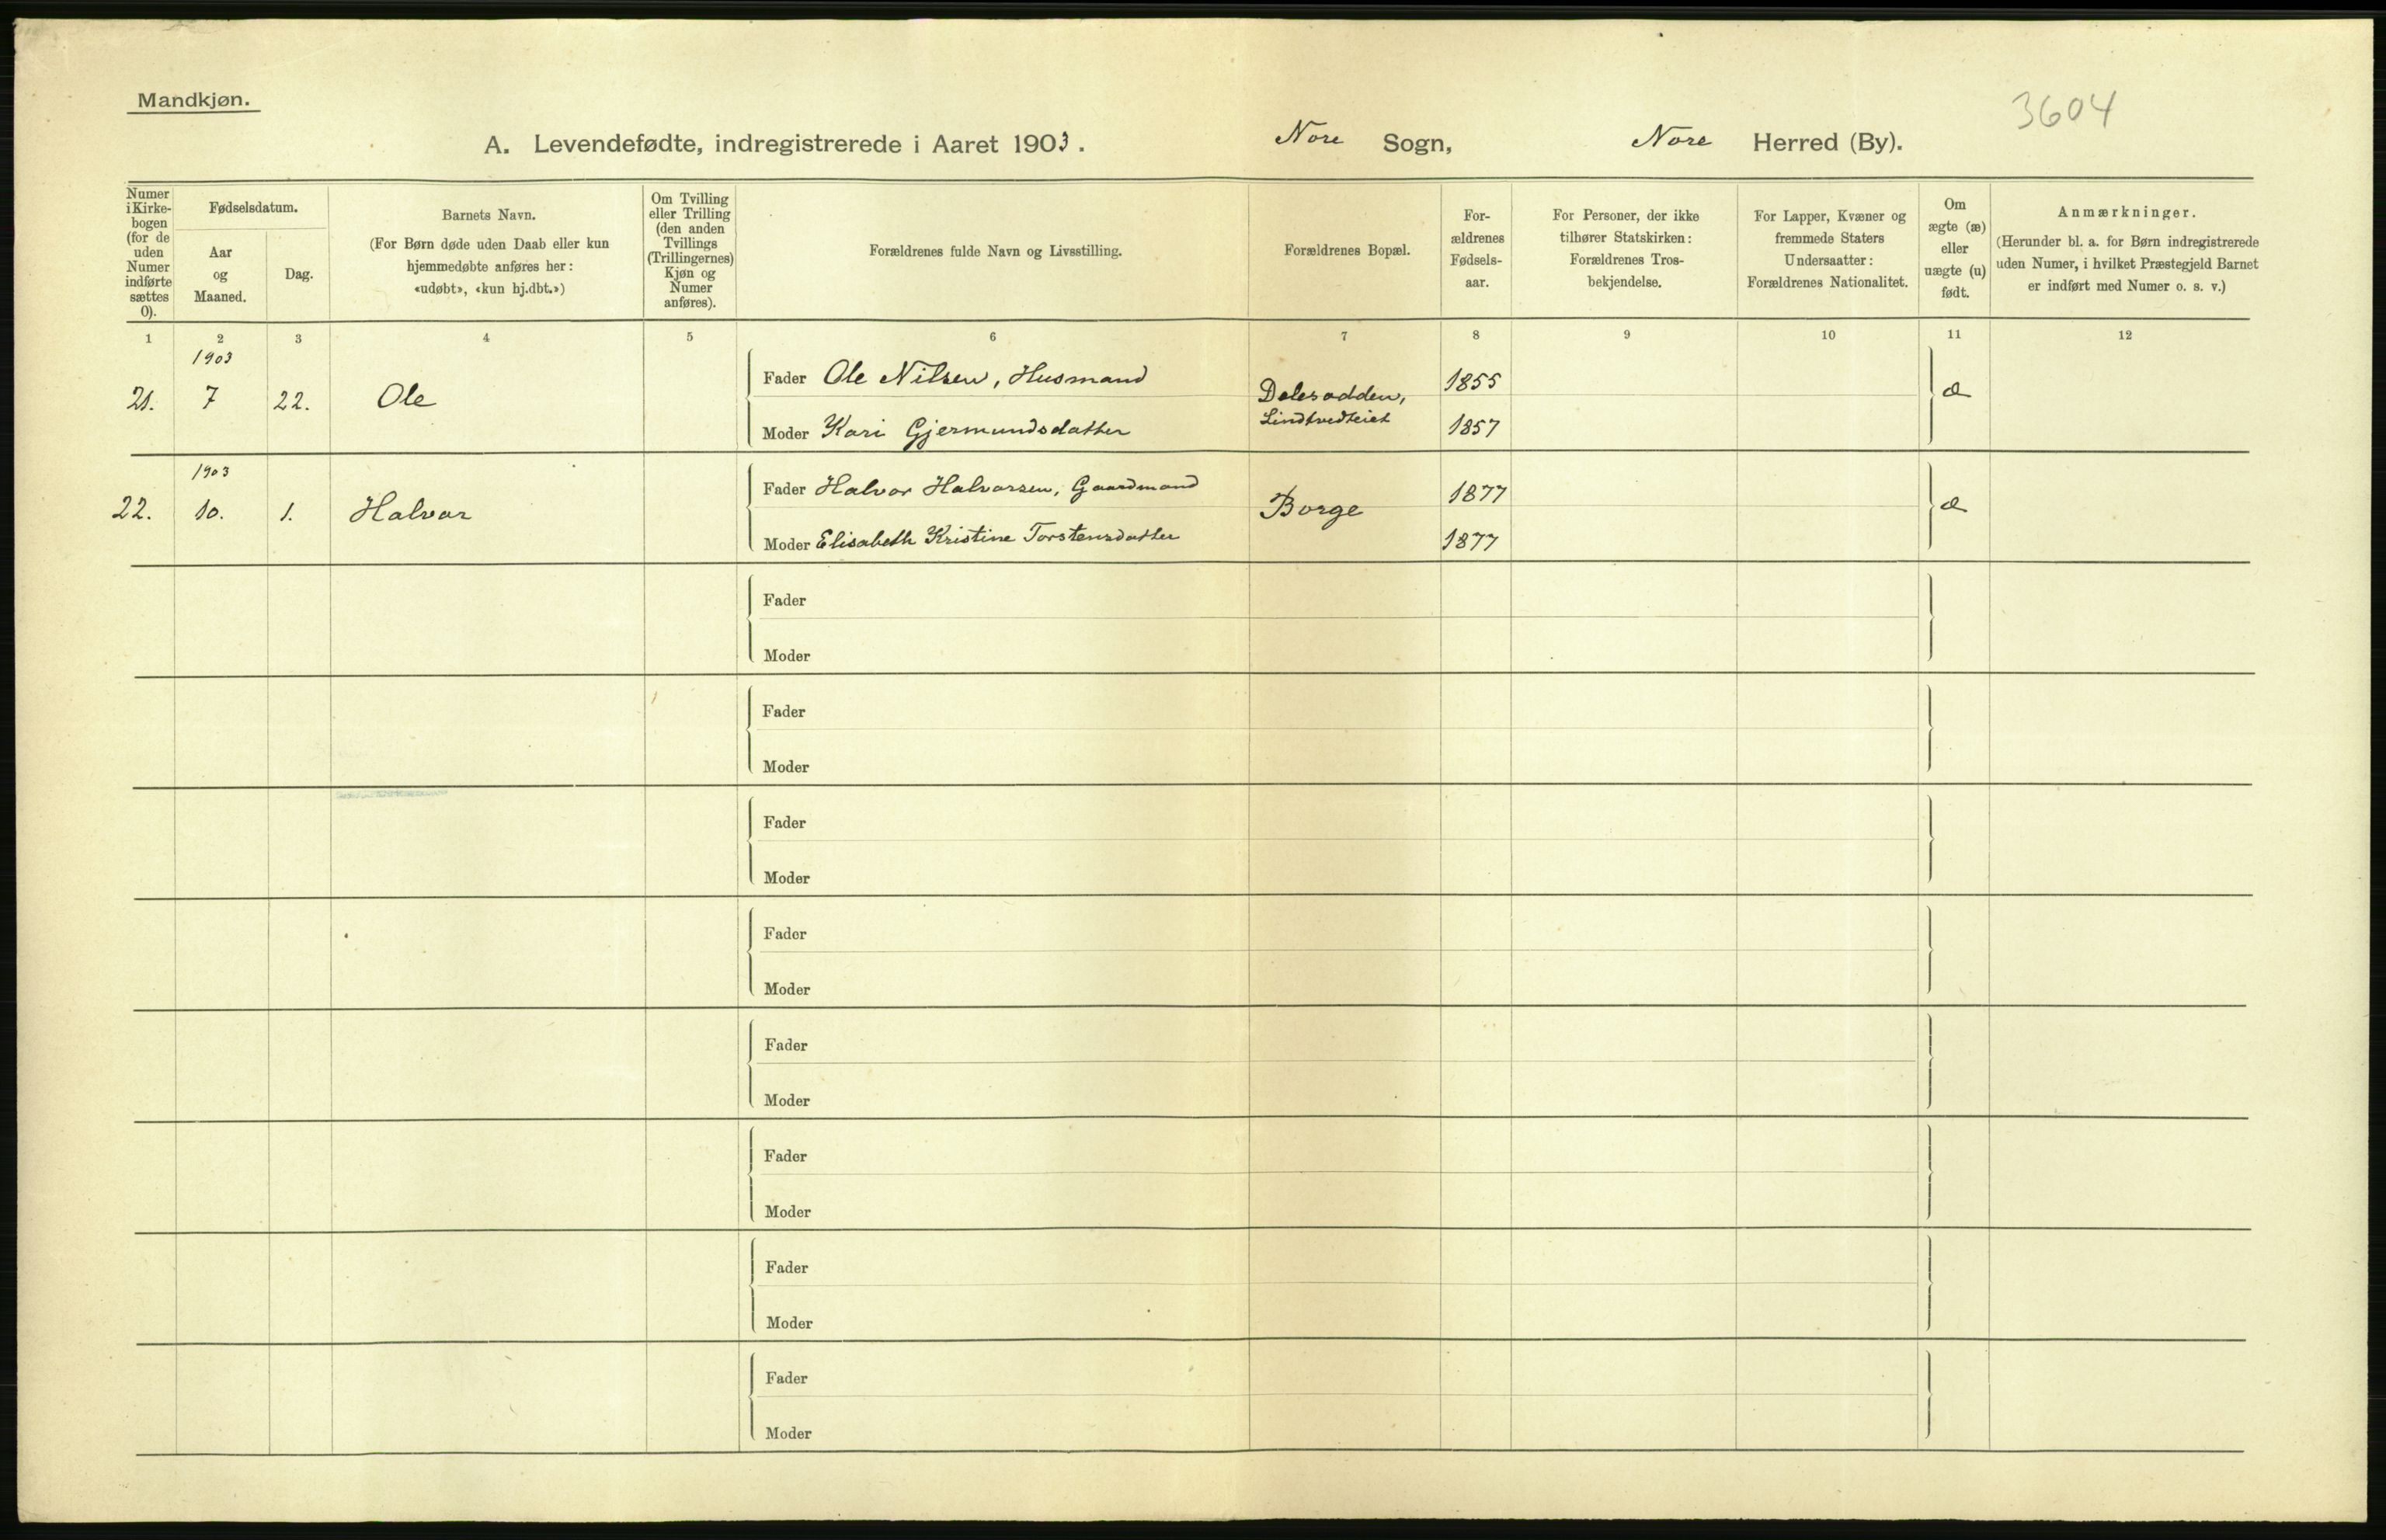 Mandkjøn.
3604
A. Levendefødte, indregistrerede i Aaret 1903. Nore Sogn, Nore Herred (By).
Numer i Kirke-bogen (for de uden Numer indførte sættes 0).
Fødselsdatum.
Aar og Maaned.
Dag.
Barnets Navn.
(For Børn døde uden Daab eller kun
hjemmedøbte anføres her:
«udøbt», «kun hj.dbt.»)
Om Tvilling
eller Trilling
(den anden
Tvillings
(Trillingernes)
Kjøn og
Numer
anføres).
Forældrenes fulde Navn og Livsstilling.
Forældrenes Bopæl.
For-
ældrenes
Fødsels-
aar.
For Personer, der ikke
tilhører Statskirken:
Forældrenes Tros-
bekjendelse.
For Lapper, Kvæner og
fremmede Staters
Undersaatter:
Forældrenes Nationalitet.
Om
ægte (æ)
eller
uægte (u)
født.
Anmærkninger.
(Herunder bl. a. for Børn indregistrerede
uden Numer, i hvilket Præstegjeld Barnet
er indført med Numer o. s. v.)
1 2 3 4 5 6 7 8 9 10 11 12
1903
21. 7 22. Ole
Fader Ole Nilsen, Husmand
Moder Kari Gjermundsdatter
Dalesodden,
Lindtvedteiet
1855
1857
æ
1903
22. 10. 1. Halvor
Fader Halvor Halvorsen, Gaardmand
Moder Elisabeth Kristine Torstensdatter
Borge
1877
1877
æ
Fader
Moder
Fader
Moder
Fader
Moder
Fader
Moder
Fader
Moder
Fader
Moder
Fader
Moder
Fader
Moder